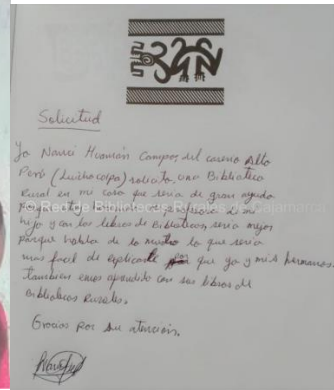 Solicitud
Yo Nanci Huamán Campos, del caserio Alto
Perú (Luichocolpa) solicito, una Biblioteca
Rural en mi casa que seria de gran ayuda
porque yo hoy profesora de mi
© Red de Bibliotecas Rurales de Cajamarca
hijo y con los libros de Bibliotecas, seria mejor
porque habla de lo nuestro lo que seria
mas facil de explicarle que yo y mis hermanos
tambien emos aprendido con sus libros de
Bibliotecas Rurales.
Gracias por su atención.